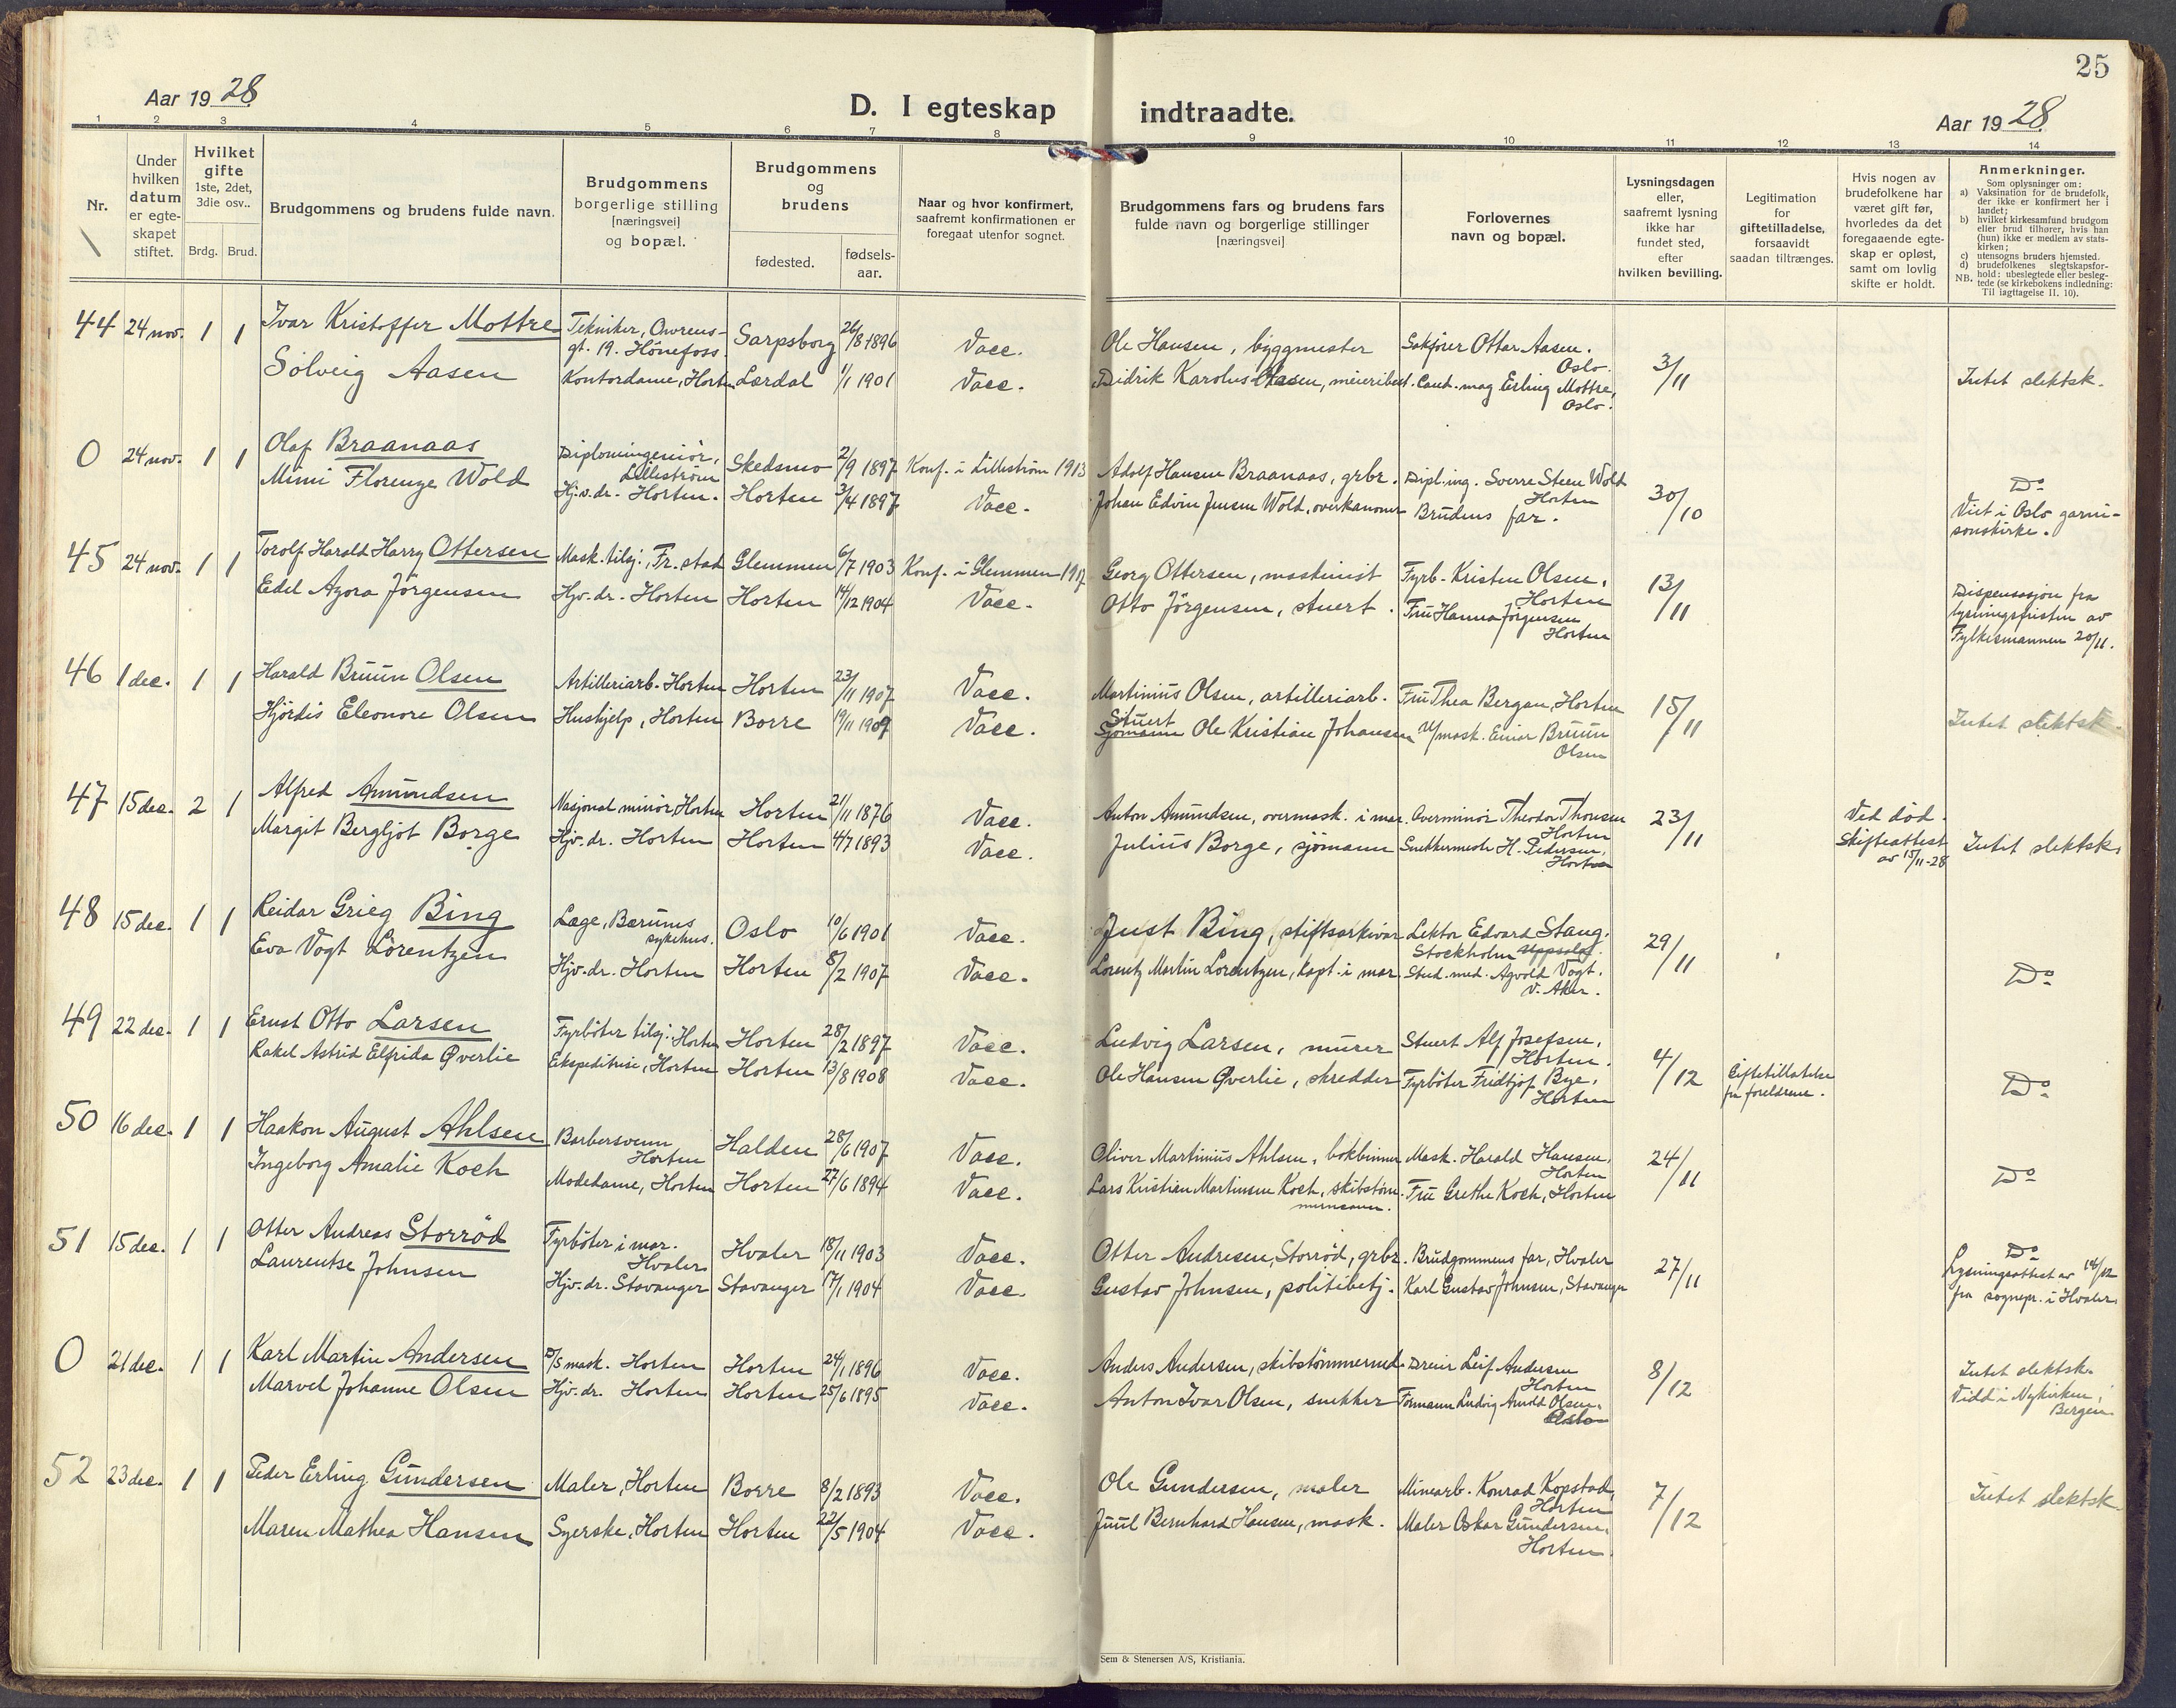 25
Aar 1928
D. I egteskap indtraadte.
Aar 1928
1 2 3 4 5 6 7 8 9 10 11 12 13 14
Nr.
Under hvilken datum er egte-skapet stiftet.
Hvilket gifte 1ste, 2det, 3die osv..
Brdg. Brud.
Brudgommens og brudens fulde navn.
Brudgommens borgerlige stilling [næringsvei] og bopæl.
Brudgommens og brudens
fødested.
fødsels-aar.
Naar og hvor konfirmert, saafremt konfirmationen er foregaat utenfor sognet.
Brudgommens fars og brudens fars fulde navn og borgerlige stillinger [næringsvei]
Forlovernes navn og bopæl.
Lysningsdagen eller, saafremt lysning ikke har fundet sted, efter hvilken bevilling.
Legitimation for giftetilladelse, forsaavidt saadan tiltrænges.
Hvis nogen av brudefolkene har været gift før, hvorledes da det foregaaende egte-skap er opløst, samt om lovlig skifte er holdt.
Anmerkninger.
Som oplysninger om:
a) Vaksination for de brudefolk, der ikke er konfirmert her i landet;
b) hvilket kirkesamfund brudgom eller brud tilhører, hvis han (hun) ikke er medlem av stats-kirken;
c) utensogns bruders hjemsted.
d) brudefolkenes slegtskapsfor-hold: ubeslegtede eller besleg-tede (se kirkebokens indledning:
NB. Til iagttagelse II. 10).
44 24 nov. 1 1 Ivar Kristoffer Mottre Tekniker, Owrens-gt. 19. Hönefoss. Sarpsborg 26/8 1896 Vacc. Ole Hansen, byggmester Sakförer Ottar Aasen. Oslo. 3/11
Solveig Aasen Kontordame, Horten Lærdal 1/1 1901 Vacc. Didrik Karolus Aasen, meieribest. Cand. mag Erling Mottre, Oslo. Intet slektsk.
0 24 nov. 1 1 Olaf Braanaas Diplomingeniör, Lilleström Skedsmo 2/9 1897 Konf. i Lilleström 1913 Adolf Hansen Braanaas, grbr. Dipl. ing. Sverre Steen Wold Horten 30/10 Do
Mimi Florenze Wold Hjv. dr. Horten. Horten 3/4 1897 Vacc. Johan Edvin Jensen Wold, overkanoner Brudens far. Viet i Oslo garni-sonskirke.
45 24 nov. 1 1 Torolf Harald Harry Ottersen Mask. tilsj., Fr.stad Glemmen 6/7 1903 Konf. i Glemmen 1917 Georg Ottersen, maskinist Fyrb. Kristen Olsen, Horten 13/11
Edel Azora Jörgensen Hjv. dr. Horten Horten 14/12 1904 Vacc. Otto Jörgensen, stuert. Fru Hanna Jörgensen Horten Dispensasjon fra lysningsfristen av Fylkesmannen 20/11.
46 1 dec. 1 1 Harald Bruun Olsen Artilleriarb. Horten Horten 23/11 1907 Vacc. Martinius Olsen, artilleriarb. Fru Thea Bergan, Horten 15/11
Hjördis Eleonore Olsen Hushjelp, Horten Borre 19/11 1909 Vacc. Stuert Sjömann Ole Kristian Johansen U/mask. Einar Bruun Olsen Intet slektsk.
47 15 dec. 2 1 Alfred Amundsen Nasjonal minör Horten Horten 21/11 1876 Vacc. Anton Amundsen, overmask. i mar. Overminör Theodor Thonsen Horten 23/11 Ved död. Skifteattest av 15/11-28
Margit Bergljot Borge Hjv. dr. Horten Horten 4/7 1893 Vacc. Julius Borge, sjömann Snekkermester H. Pedersen, Horten Intet slektsk.
48 15 dec. 1 1 Reidar Grieg Bing Læge, Bærums sykehus. Oslo 10/6 1901 Vacc. Just Bing, stiftsarkivar Lektor Edvard Stang. Stockholm Uppsala. 29/11
Eva Vogt Lorentzen Hjv. dr. Horten Horten 8/2 1907 Vacc. Lorentz Martin Lorentzen, Kapt. i mar. Stud. med. Agvold Vogt. V. Aker. Do
49 22 dec. 1 1 Ernst Otto Larsen Fyrböter tilsj. Horten Horten 28/2 1897 Vacc. Ludvig Larsen, murer Stuert Alf Josefsen, Horten. 4/12 Giftetillatelse fra foreldrene.
Rakel Astrid Elfrida Øverlie Ekspeditrise, Horten Horten 13/8 1908 Vacc. Ole Hansen Øverlie, skredder Fyrböter Fridtjof Bye, Horten Do
50 16 dec. 1 1 Haakon August Ahlsen Barbersvenn Horten Halden 28/6 1907 Vacc. Oliver Martinius Ahlsen, bokbinner Mask. Harald Hansen, Horten 24/11
Ingeborg Amalie Koch Modedame, Horten Horten 27/6 1894 Vacc. Lars Kristian Martinsen Koch, skibstöm-mermann. Fru Grethe Koch, Horten Do
51 15 dec. 1 1 Otter Andreas Storröd Fyrböter i mar. Hvaler Hvaler 18/11 1903 Vacc. Otter Andresen, Storröd, grbr. Brudgommens far, Hvaler 27/11 Do
Laurentse Johnsen Hjv. dr. Stavanger Stavanger 17/1 1904 Vacc. Gustav Johnsen, politibetj. Karl Gustav Johnsen, Stavanger Lysningsattest av 14/12 fra sognepr. i Hvaler.
0 21 dec. 1 1 Karl Martin Andersen mask. Horten Horten 24/1 1896 Vacc. Anders Andersen, skibstömmermed. Dreier Leif Andersen Horten 8/12 Intet slektsk.
Marvel Johanne Olsen Hjv. dr. Horten Horten 25/6 1895 Vacc. Anton Ivar Olsen, snekker Formann Ludvig Olsen. Oslo Vidd i Nykirken, Bergen
52 23 dec. 1 1 Peder Erling Gundersen Maler, Horten Borre 8/2 1893 Vacc. Ole Gundersen, maler Minearb. Konrad Kopstad, Horten 7/12 Intet slektsk.
Maren Mathea Hansen Syerske, Horten Horten 22/5 1904 Vacc. Juul Bernhard Hansen, mask. Maler Oskar Gundersen, Horten.
Sem & Stenersen A/S, Kristiania.